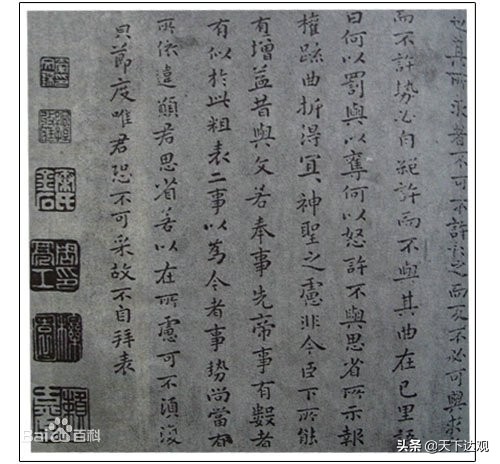 也其所求者不可不許〻之而反不必可與求
而不許勢必自絕許而不與其曲在己里語
曰何以罰與以奪何以怒許不與思省所示報
權疏曲折得宜神聖之慮非今臣下所能
有增益昔與文若奉事先帝事有數者
有似於此粗表二事以為今者事勢尚當有
所依違願君思省若以在所慮可不須復
節度唯君恐不可采故不自拜表
Bai百科
头条 @天下达观